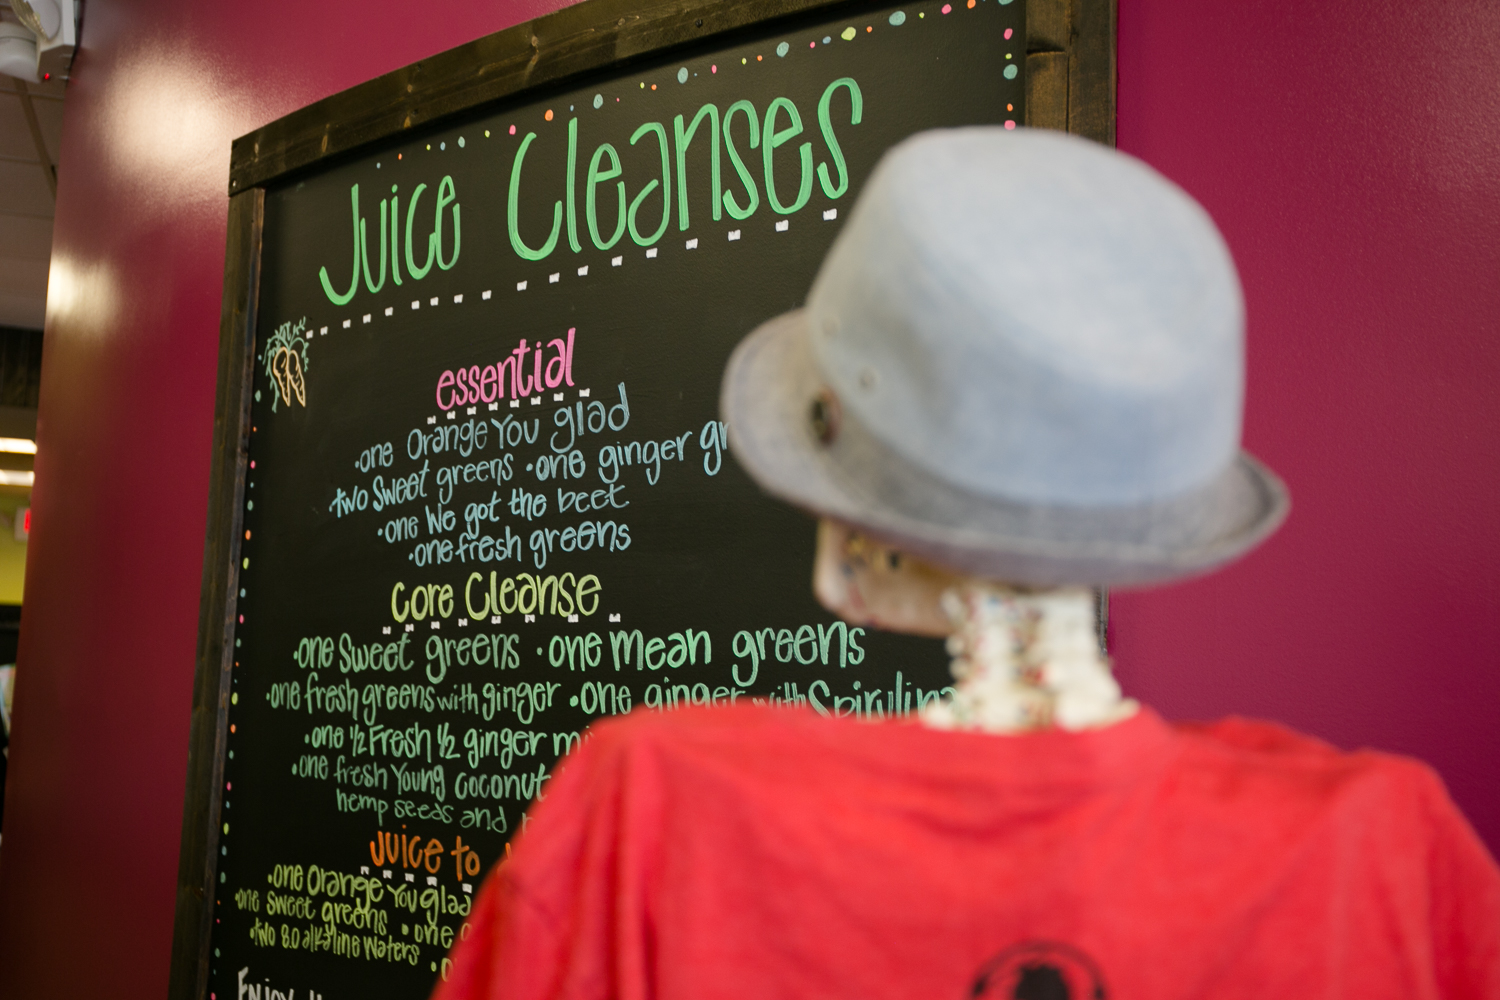 Juice Cleanses
essential
•one Orange You glad
two Sweet greens •one ginger
•one We got the beet
•one fresh greens
core Cleanse
•one Sweet greens •one mean greens
•one fresh greens with ginger •One ginger with Spirulina
•one ½ Fresh ½ ginger
•one fresh Young coconut
hemp seeds and
Juice to
•one Orange You glad
•one sweet greens •one
•two 8.0 alkaline waters
Enjoy